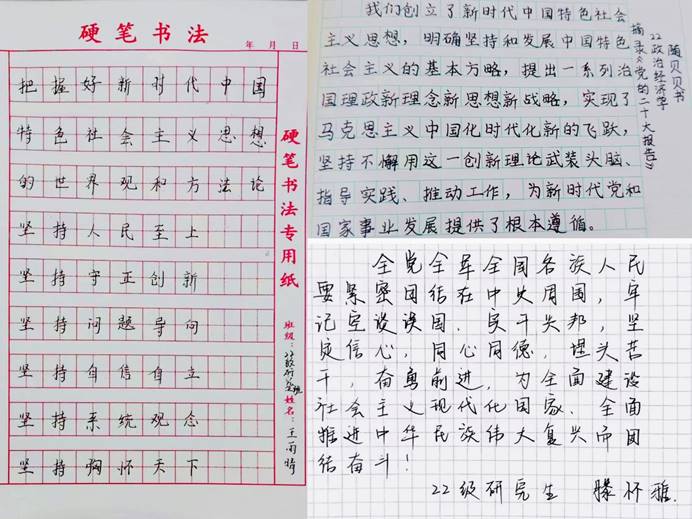 硬笔书法
年 月 日
把握好新时代中国
特色社会主义思想
的世界观和方法论
坚持人民至上
坚持守正创新
坚持问题导向
坚持自信自立
坚持系统观念
坚持胸怀天下
硬笔书法专用纸
班级：
姓名：王雨晴
我们创立了新时代中国特色社会
主义思想，明确坚持和发展中国特色
社会主义的基本方略，提出一系列治
国理政新理念新思想新战略，实现了
马克思主义中国化时代化新的飞跃，
坚持不懈用这一创新理论武装头脑、
指导实践、推动工作，为新时代党和
国家事业发展提供了根本遵循。
摘录《党的二十大报告》
22政治经济学
随贝贝书
全党全军全国各族人民
要紧密团结在中央周围，牢
记空谈误国、实干兴邦，坚
定信心，同心同德，埋头苦
干，奋勇前进，为全面建设
社会主义现代化国家、全面
推进中华民族伟大复兴而团
结奋斗！
22级研究生 滕怀雅